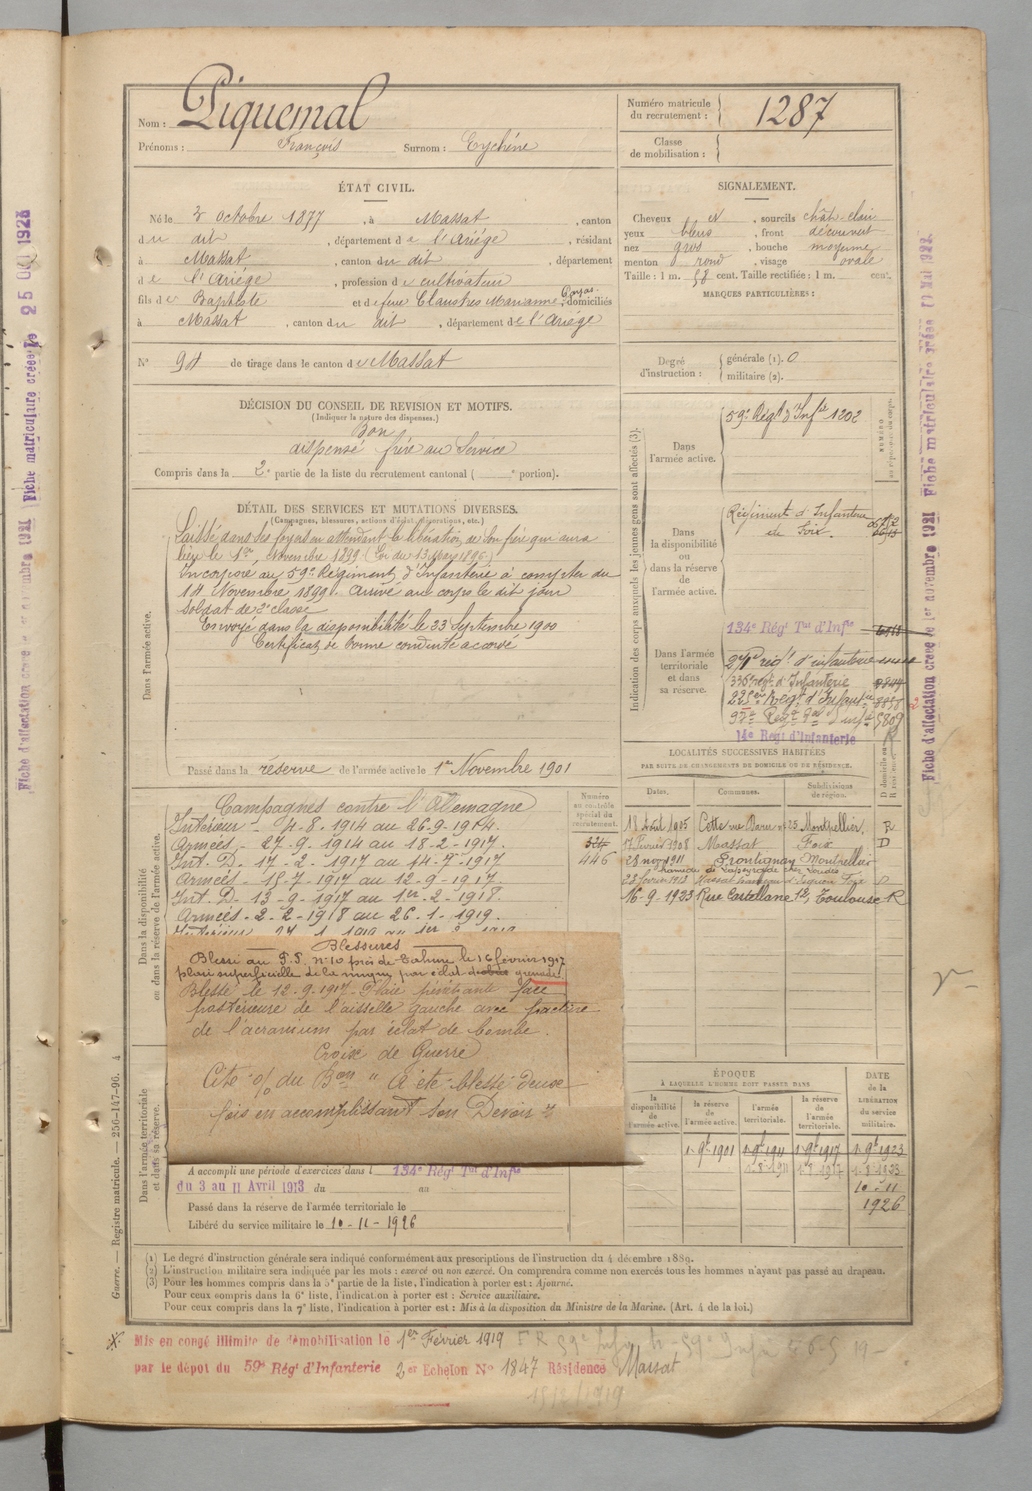 Nom : Piquemal
Prénoms : François Surnom : Eychéne
Numéro matricule du recrutement : 1287
Classe de mobilisation :
ÉTAT CIVIL.
Né le 3 octobre 1877, à Massat, canton
du dit, département de l'Ariége, résidant
à Massat, canton du dit, département
de l'Ariége, profession de cultivateur
fils de Baptiste et de feue Claustres Marianne, domiciliés
à Massat, canton du dit, département de l'Ariége
N° 94 de tirage dans le canton de Massat
SIGNALEMENT.
Cheveux et, sourcils chât-clair
yeux bleus, front découvert
nez gros, bouche moyenne
menton rond, visage ovale
Taille : 1 m. 58 cent. Taille rectifiée : 1 m. cent.
MARQUES PARTICULIÈRES :
Degré d'instruction : générale (1). 0
militaire (2).
DÉCISION DU CONSEIL DE REVISION ET MOTIFS.
(Indiquer la nature des dispenses.)
Bon
dispensé frère au Service
Compris dans la 2e partie de la liste du recrutement cantonal ( e portion).
DÉTAIL DES SERVICES ET MUTATIONS DIVERSES.
(Campagnes, blessures, actions d'éclat, décorations, etc.)
Laissé dans ses foyers en attendant la libération de son frère qui aura
lieu le 1er Novembre 1899 (Loi du 13 mars 1896)
Incorporé au 59e Régiment d'Infanterie à compter du
14 Novembre 1899. Arrivé au corps le dit jour
soldat de 2e classe
Envoyé dans la disponibilité le 23 Septembre 1900
Certificat de bonne conduite accordé
Dans l'armée active.
Passé dans la réserve de l'armée active le 1er Novembre 1901
Indication des corps auxquels les jeunes gens sont affectés (3).
NUMÉRO
Dans l'armée active.
59e Régt d'Infie 1202
Dans la disponibilité ou dans la réserve de l'armée active.
Régiment d'Infanterie
de Foix.
Dans l'armée territoriale et dans sa réserve.
134e Régt Tal d'Infie
régt d'infanterie
335e régt d'Infanterie
14e Régt d'Infanterie
LOCALITÉS SUCCESSIVES HABITÉES
PAR SUITE DE CHANGEMENTS DE DOMICILE OU DE RÉSIDENCE.
Dates. Communes. Subdivisions de région. D domicile ou R résidence.
18 Août 1905 Cette rue 25 Montpellier R
17 Février 1908 Massat Foix D
28 nov 1911 Frontignan Montpellier
16-9-1923 Rue Castellane 12, Toulouse R
Dans la disponibilité ou dans la réserve de l'armée active.
Numéro au contrôle spécial du recrutement.
446
Campagnes contre l'Allemagne
Intérieur - 4-8-1914 au 26-9-1914.
Armées - 27-9-1914 au 18-2-1917.
Int. D. 17-2-1917 au 14-7-1917
Armées - 15-7-1917 au 12-9-1917
Int. D - 13-9-1917 au 1er-2-1918.
Armées - 2-2-1918 au 26-1-1919.
Blessures
Blessé au P.P. n° 10 près de Tahure le 16 février 1917
plaie superficielle de la main par éclat d'obus grenade
Blessé le 12-9-1917 - Plaie pénétrante face
postérieure de l'aisselle gauche avec fracture
de l'acromium par éclat de bombe.
Croix de Guerre
Cité o/ du Bon " A été blessé deux
fois en accomplissant son Devoir "
ÉPOQUE
À LAQUELLE L'HOMME DOIT PASSER DANS
la disponibilité de l'armée active. la réserve de l'armée active. l'armée territoriale. la réserve de l'armée territoriale.
DATE de la LIBÉRATION du service militaire.
1-9bre 1901 1-9bre 1911 1-9bre 1917 1-9bre 1923
1-8-1911 1-8-1917 1-8-1923
10-11
1926
Dans l'armée territoriale et dans sa réserve.
A accompli une période d'exercices dans l 134e Régt Tal d'Infie
du 3 au 11 Avril 1913 du au
Passé dans la réserve de l'armée territoriale le
Libéré du service militaire le 10-11-1926
(1) Le degré d'instruction générale sera indiqué conformément aux prescriptions de l'instruction du 4 décembre 1889.
(2) L'instruction militaire sera indiquée par les mots : exercé ou non exercé. On comprendra comme non exercés tous les hommes n'ayant pas passé au drapeau.
(3) Pour les hommes compris dans la 5e partie de la liste, l'indication à porter est : Ajourné.
Pour ceux compris dans la 6e liste, l'indication à porter est : Service auxiliaire.
Pour ceux compris dans la 7e liste, l'indication à porter est : Mis à la disposition du Ministre de la Marine. (Art. 4 de la loi.)
Mis en congé illimité de démobilisation le 1er Février 1919
par le dépot du 59e Régt d'Infanterie 2er Echelon N° 1847 Résidence Massat
Guerre. — Registre matricule. — 256-147-96.
Fiche d'affectation créée le 1er novembre 1921 Fiche matriculaire créée le
Fiche d'affectation créée le 1er novembre 1921 Fiche matriculaire créée le